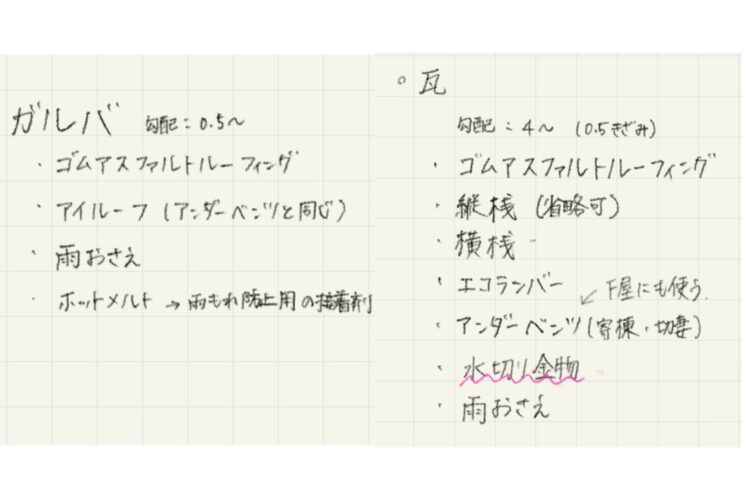 ガルバ 勾配：0.5〜
・ゴムアスファルトルーフィング
・アイルーフ（アンダーベンツと同じ）
・雨おさえ
・ホットメルト → 雨もれ防止用の接着剤
○ 瓦
勾配：4〜（0.5きざみ）
・ゴムアスファルトルーフィング
・縦桟（省略可）
・横桟
・エコランバー
下屋にも使う.
・アンダーベンツ（寄棟・切妻）
・水切り金物
・雨おさえ